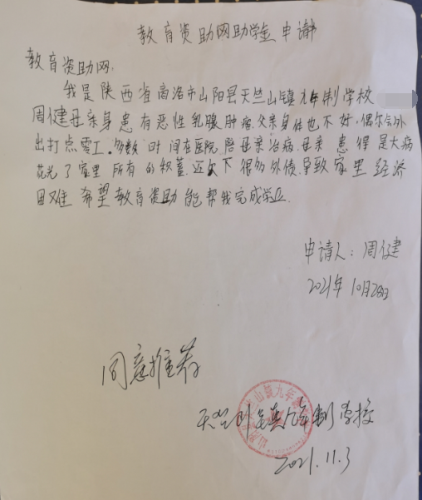 教育资助网助学金申请
教育资助网:
我是陕西省商洛市山阳县天竺山镇九年制学校
周健母亲身患有恶性乳腺肿瘤,父亲身体也不好,偶尔会外
出打点零工。多数时间在医院陪母亲治病,母亲患得是大病
花光了家里所有的积蓄,还欠下很多外债,导致家里经济
困难,希望教育资助能帮我完成学业。
申请人:周健
2021年10月28日
同意推荐
天竺山镇九年制学校
2021.11.3